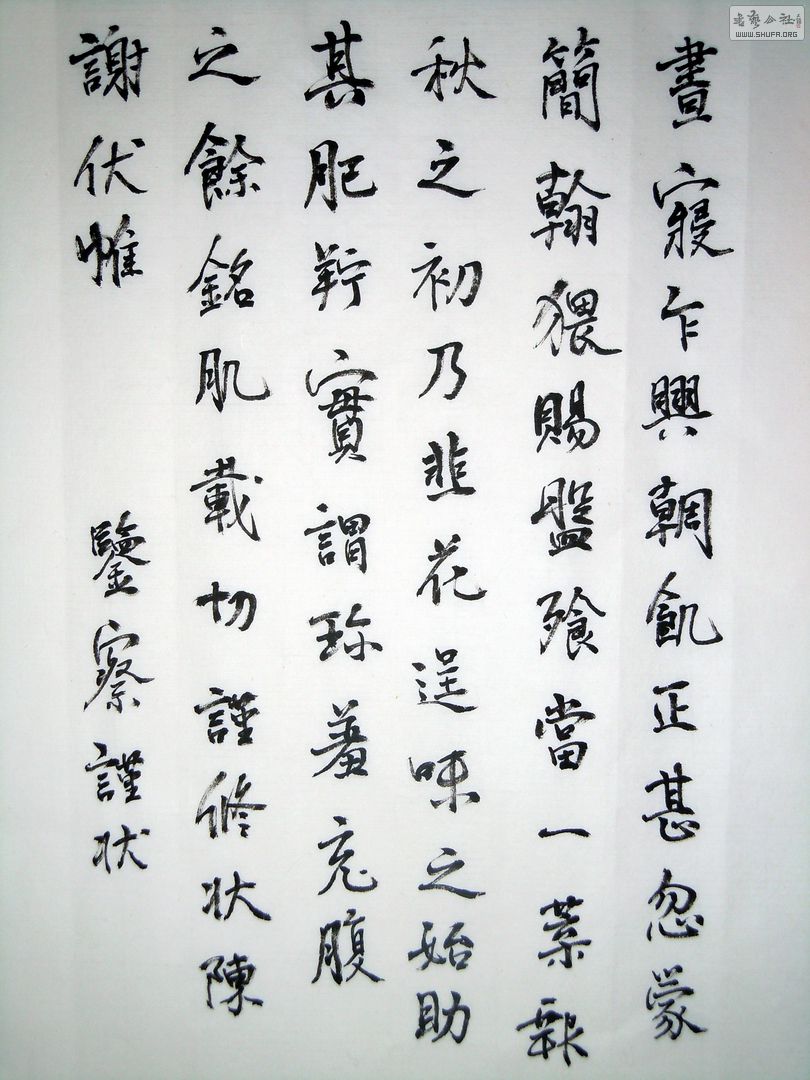 晝寢乍興朝飢正甚忽蒙
簡翰猥賜盤飱當一葉報
秋之初乃韭花逞味之始助
其肥羜實謂珎羞充腹
之餘銘肌載切謹修狀陳
謝伏惟　鑒察謹狀
書藝公社
WWW.SHUFA.ORG